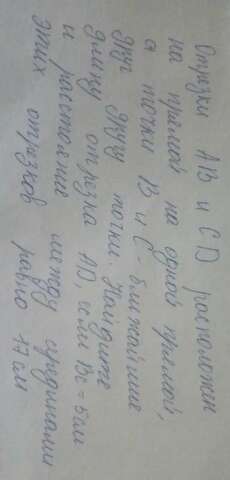 Отрезки AB и CD расположен
на прямой на одной прямой,
а точки B и C - ближайшие
друг другу точки. Найдите
длину отрезка AD, если BC = 5см
и расстояние между серединами
этих отрезков равно 17см